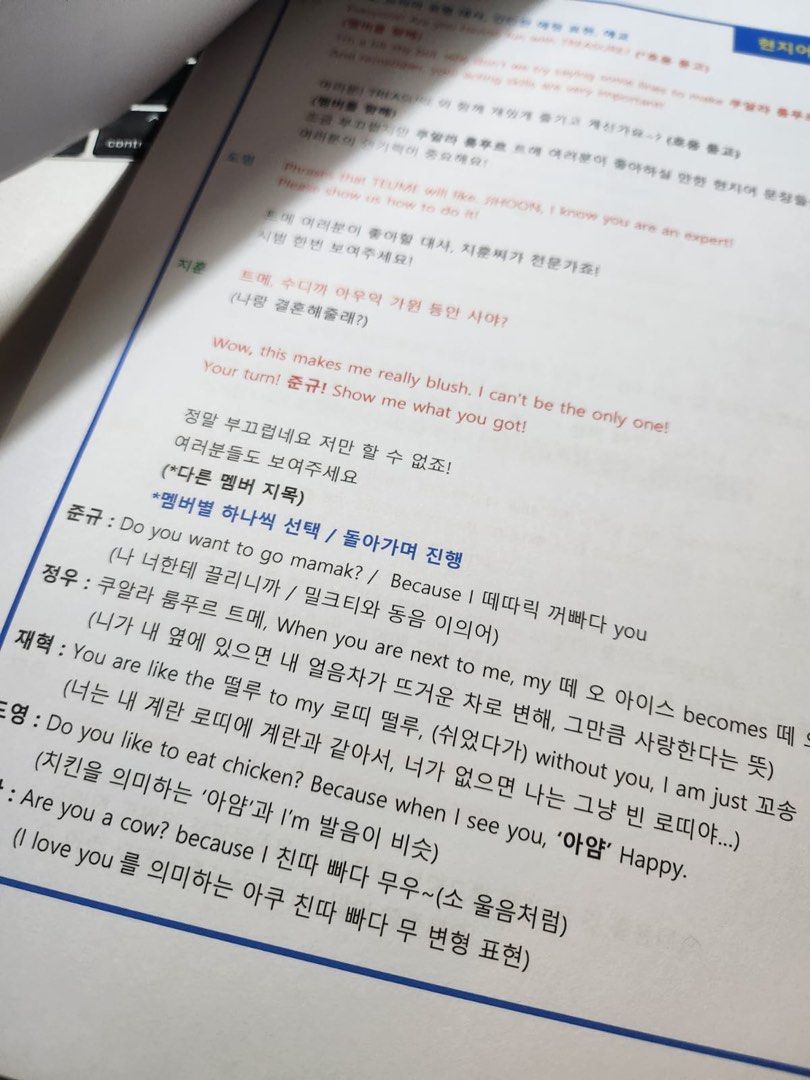 현지어
Everyone! Are you having fun with TREASURE? (*호응 듣고)
(멤버를 향해)
I'm a bit shy but, why don't we try saying some lines to make 쿠알라 룸푸르
And remember, your acting skills are very important!
여러분! TREASURE 와 함께 재밌게 즐기고 계신가요~? (호응 듣고)
(멤버를 향해)
조금 부끄럽지만 쿠알라 룸푸르 트메 여러분이 좋아하실 만한 현지어 문장들
여러분의 연기력이 중요해요!
도영
Phrases that TEUME will like. JIHOON, I know you are an expert!
Please show us how to do it!
트메 여러분이 좋아할 대사, 지훈씨가 전문가죠!
시범 한번 보여주세요!
지훈
트메, 수디까 아우악 가원 동안 사야?
(나랑 결혼해줄래?)
Wow, this makes me really blush. I can't be the only one!
Your turn! 준규! Show me what you got!
정말 부끄럽네요 저만 할 수 없죠!
여러분들도 보여주세요
(*다른 멤버 지목)
*멤버별 하나씩 선택 / 돌아가며 진행
준규 : Do you want to go mamak? / Because I 떼따릭 꺼빠다 you
(나 너한테 끌리니까 / 밀크티와 동음 이의어)
정우 : 쿠알라 룸푸르 트메, When you are next to me, my 떼 오 아이스 becomes 떼
(니가 내 옆에 있으면 내 얼음차가 뜨거운 차로 변해, 그만큼 사랑한다는 뜻)
재혁 : You are like the 떨루 to my 로띠 떨루, (쉬었다가) without you, I am just 꼬송
(너는 내 계란 로띠에 계란과 같아서, 너가 없으면 나는 그냥 빈 로띠야...)
도영 : Do you like to eat chicken? Because when I see you, ‘아얌’ Happy.
(치킨을 의미하는 ‘아얌’과 I'm 발음이 비슷)
: Are you a cow? because I 친따 빠다 무우~(소 울음처럼)
(I love you 를 의미하는 아쿠 친따 빠다 무 변형 표현)